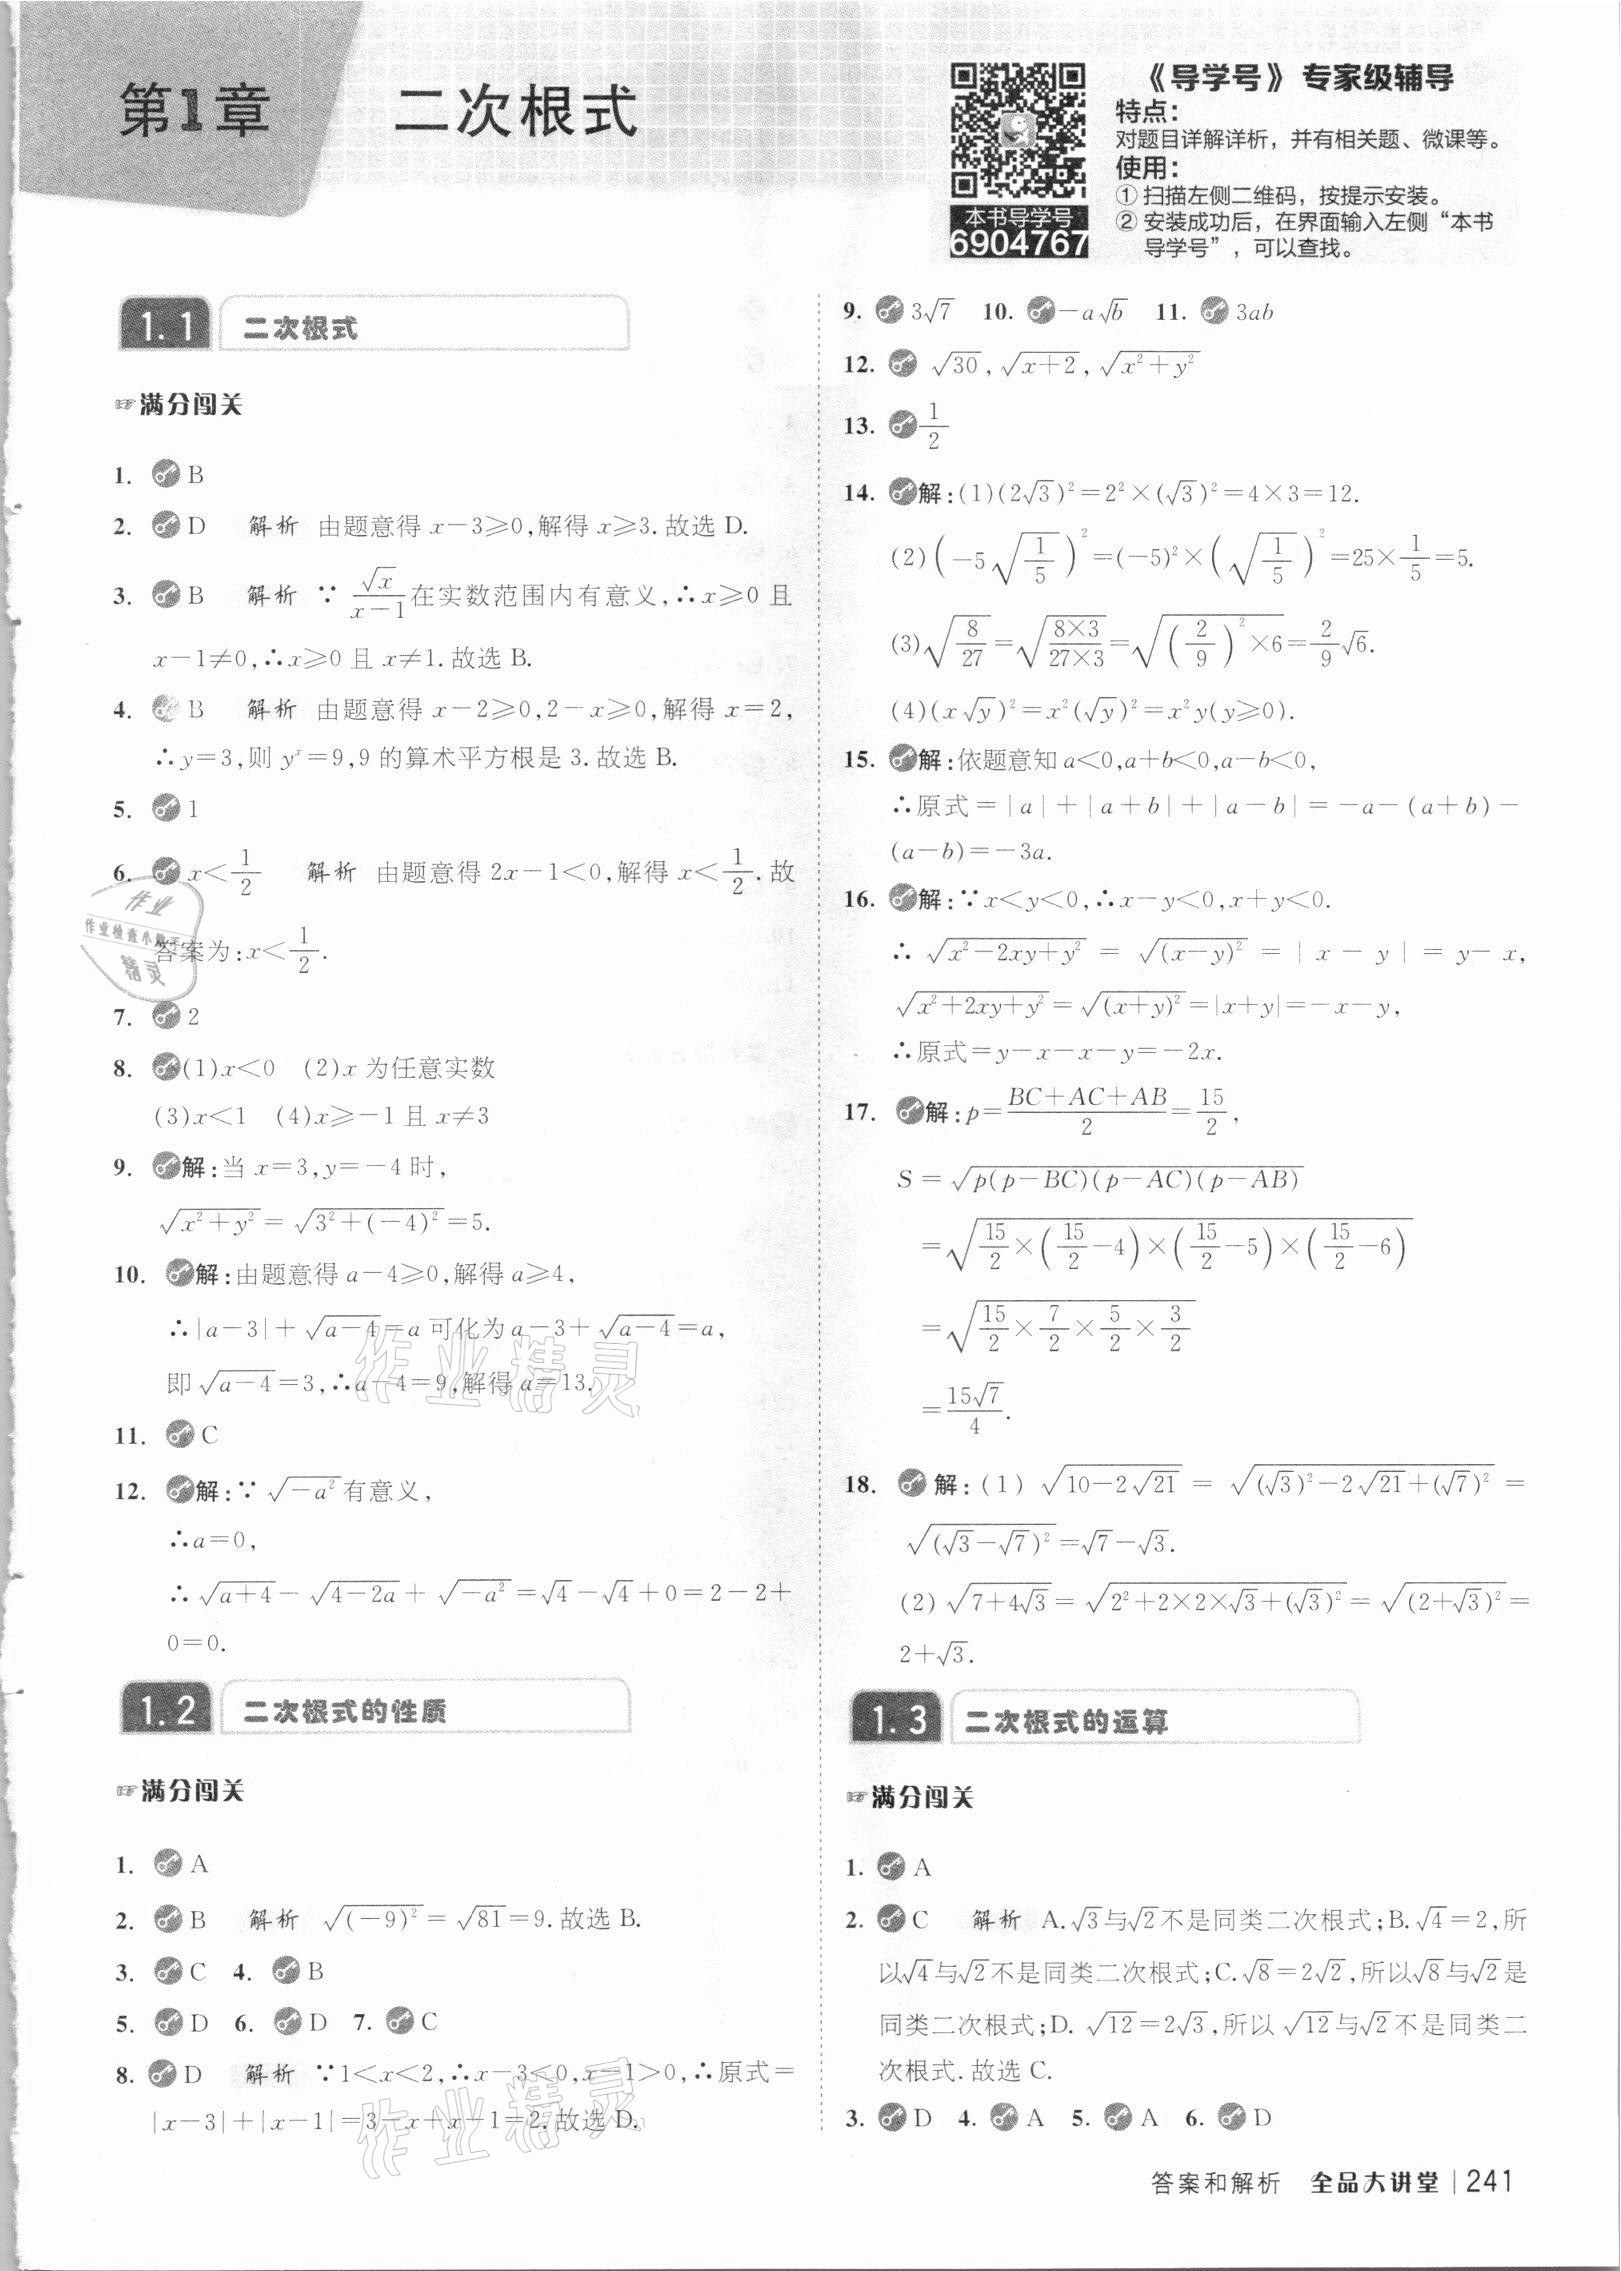 第1章 二次根式
《导学号》专家级辅导
特点：
对题目详解详析，并有相关题、微课等。
使用：
① 扫描左侧二维码，按提示安装。
② 安装成功后，在界面输入左侧“本书
导学号”，可以查找。
本书导学号
6904767
1.1 二次根式
☞满分闯关
1. B
2. D 解析 由题意得 x－3≥0,解得 x≥3.故选 D.
3. B 解析 ∵ √x/(x－1) 在实数范围内有意义,∴x≥0 且
x－1≠0,∴x≥0 且 x≠1.故选 B.
4. B 解析 由题意得 x－2≥0,2－x≥0,解得 x=2,
∴y=3,则 yˣ=9,9 的算术平方根是 3.故选 B.
5. 1
6. x<1/2 解析 由题意得 2x－1<0,解得 x<1/2.故
答案为:x<1/2.
7. 2
8. (1)x<0 (2)x 为任意实数
(3)x<1 (4)x≥－1 且 x≠3
9. 解:当 x=3,y=－4 时,
√(x²+y²)=√(3²+(－4)²)=5.
10. 解:由题意得 a－4≥0,解得 a≥4,
∴|a－3|+√(a－4)=a 可化为 a－3+√(a－4)=a,
即√(a－4)=3,∴a－4=9,解得 a=13.
11. C
12. 解:∵√(－a²)有意义,
∴a=0,
∴√(a+4)－√(4－2a)+√(－a²)=√4－√4+0=2－2+
0=0.
1.2 二次根式的性质
☞满分闯关
1. A
2. B 解析 √((－9)²)=√81=9.故选 B.
3. C 4. B
5. D 6. D 7. C
8. D 解析 ∵1<x<2,∴x－3<0,x－1>0,∴原式=
|x－3|+|x－1|=3－x+x－1=2.故选 D.
9. 3√7 10. －a√b 11. 3ab
12. √30,√(x+2),√(x²+y²)
13. 1/2
14. 解:(1)(2√3)²=2²×(√3)²=4×3=12.
(2)(－5√(1/5))²=(－5)²×(√(1/5))²=25×1/5=5.
(3)√(8/27)=√((8×3)/(27×3))=√((2/9)²×6)=2/9√6.
(4)(x√y)²=x²(√y)²=x²y(y≥0).
15. 解:依题意知 a<0,a+b<0,a－b<0,
∴原式=|a|+|a+b|+|a－b|=－a－(a+b)－
(a－b)=－3a.
16. 解:∵x<y<0,∴x－y<0,x+y<0.
∴√(x²－2xy+y²)=√((x－y)²)=|x－y|=y－x,
√(x²+2xy+y²)=√((x+y)²)=|x+y|=－x－y,
∴原式=y－x－x－y=－2x.
17. 解:p=(BC+AC+AB)/2=15/2,
S=√(p(p－BC)(p－AC)(p－AB))
=√(15/2×(15/2－4)×(15/2－5)×(15/2－6))
=√(15/2×7/2×5/2×3/2)
=15√7/4.
18. 解:(1)√(10－2√21)=√((√3)²－2√21+(√7)²)=
√((√3－√7)²)=√7－√3.
(2)√(7+4√3)=√(2²+2×2×√3+(√3)²)=√((2+√3)²)=
2+√3.
1.3 二次根式的运算
☞满分闯关
1. A
2. C 解析 A.√3与√2不是同类二次根式;B.√4=2,所
以√4与√2不是同类二次根式;C.√8=2√2,所以√8与√2是
同类二次根式;D.√12=2√3,所以√12与√2不是同类二
次根式.故选 C.
3. D 4. A 5. A 6. D
答案和解析 全品大讲堂|241
作业
作业检查小助手
精灵
作业精灵
作业精灵